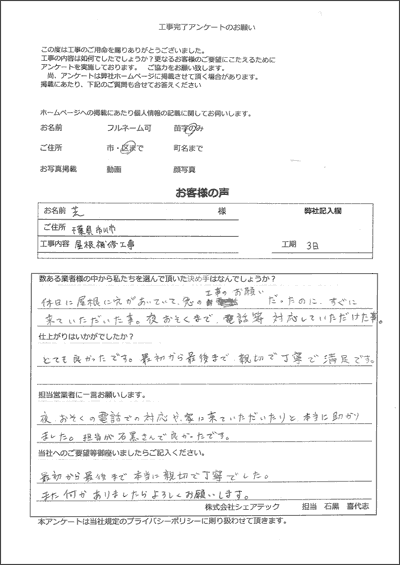 工事完了アンケートのお願い
この度は工事のご用命を賜りありがとうございました。
工事の内容は如何でしたでしょうか？更なるお客様のご要望にこたえるために
アンケートを実施しております。　ご協力をお願い致します。
尚、アンケートは弊社ホームページに掲載させて頂く場合があります。
掲載にあたり、下記のご質問も合せてお答えください
ホームページへの掲載にあたり個人情報の記載に関してお伺いします。
お名前　フルネーム可　苗字のみ
ご住所　市・区まで　町名まで
お写真掲載　動画　顔写真
お客様の声
お名前　芝　様　弊社記入欄
ご住所　千葉県市川市
工事内容　屋根補修工事　工期　3日
数ある業者様の中から私たちを選んで頂いた決め手はなんでしょうか？
工事のお願い
休日に屋根に穴があいていて、急の だったのに、すぐに
来ていただいた事。夜おそくまで、電話等 対応していただけた事。
仕上がりはいかがでしたか？
とても良かったです。最初から最後まで、親切で丁寧で 満足です。
担当営業者に一言お願いします。
夜おそくの電話での対応や、家に来ていただいたりと 本当に助かり
ました。担当が石黒さんで良かったです。
当社へのご要望等御座いましたらご記入ください。
最初から最後まで本当に親切で丁寧でした。
また何かありましたらよろしくお願いします。
株式会社シェアテック　担当　石黒　喜代志
本アンケートは当社規定のプライバシーポリシーに則り扱わせて頂きます。